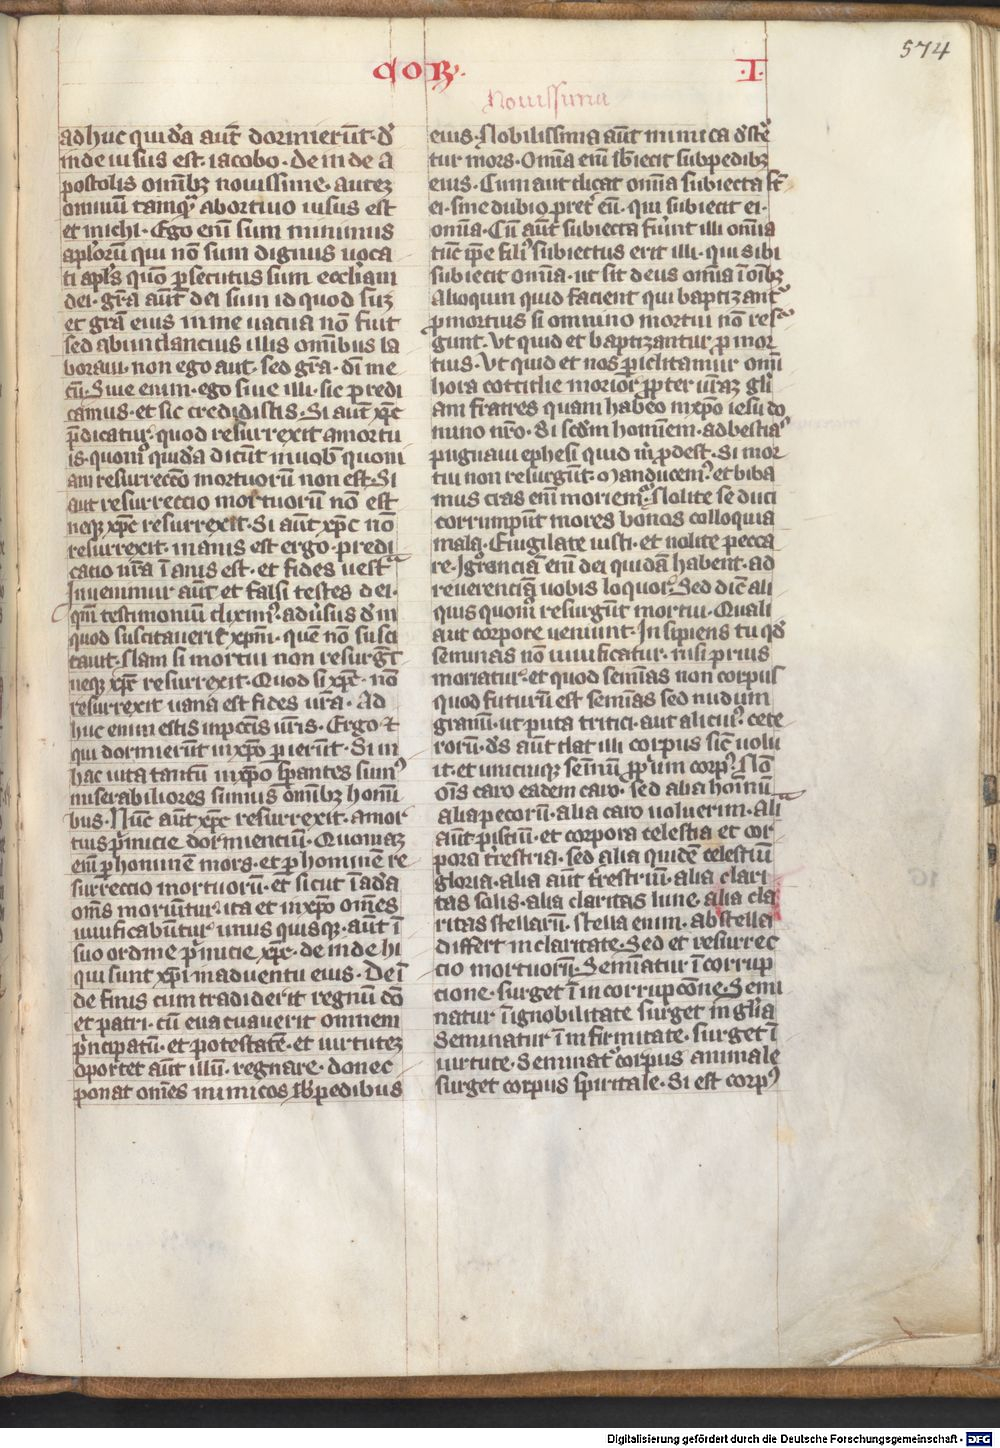 574
COR. .I.
Nouissima
adhuc quidā aut̄ dormierūt. dē
inde uisus est. iacobo. Deinde a
postolis omībꝫ nouissime. auteꝫ
omniū tamqᷓ abortiuo uisus est
et michi. Ego enī sum minimus
apl̄orū qui nō sum dignus uoca
ti apl̄s quō ꝑsecutus sum eccliam
dei. gr̄a aut̄ dei sum id quod suꝫ
et grā eius in me uacua nō fuit
sed abundancius illis omībus la
boraui. non ego aut̄. sed gr̄a. dī me
cū. Siue enim. ego siue illi. sic predi
camus. et sic credidistis. Si aut̄ xp̄c
p̄dicatur. quod resurrexit amortu
is. quomᵒ quidā dicūt in uob̄ quoni
am resurreccō mortuorū non est. Si
aut̄ resurreccio mortuorū nō est
neqꝫ xp̄c resurrexit. Si aūt xp̄c nō
resurrexit. inanis est ergo. predi
catio nr̄a īanis est. et fides uestᵃ
Inuenimur aūt et falsi testes dei.
qm̄ testimoniū dixim᾿. adúsus dm̄
quod suscitauerit xpm̄. quē nō susci
tauit. Nam si mortui non resurgūt
neqꝫ xp̄c resurrexit. Quod si xp̄c. nō
resurrexit uana est fides ur̄a. Ad
huc enim estis inpccīs ur̄is. Ergo ⁊
qui dormierūt in xp̄o ꝑierūt. Si in
hac uita tantū in xp̄o sꝑantes sum᾿
miserabiliores sumus om̄ibꝫ homī
bus. Nūc aūt xp̄c resurrexit. amor
tuis pͥmicie dormienciū. Quoniaꝫ
enī ꝑ hominē mors. et ꝑ hominē re
surreccio mortuorū. et sicut ī adā
oms̄ moriūtur. ita et in xp̄o omēs
uiuificabūtur. unus quisqꝫ. aūt ī
suo ordine pͥmicie xp̄c. deinde hi
qui sunt xp̄i in aduentu eius. Deī
de finis cum tradiderit regnū dō
et patri. cū euacuauerit omnem
pͥncipatū. et potestatē. et uirtuteꝫ
oportet aūt illū. regnare. donec
ponat omēs inimicos sub pedibus
eius. Nobilissima aūt inimica dēstr̄
tur mors. Omīa enī sb̄iecit subpedibꝫ
eius. Cum aut dicat omīa subiecta st̄
ei. sine dubio pret̄ eū. qui subiecit ei.
omīa. Cū aūt subiecta fuīnt illi omīa
tūc ip̄e fili᾿ subiectus erit illi. qui sibi
subiecit omīa. ut sit deus omīa ī oībꝫ
Alioquin quid facient qui baptizant᾿
ꝓ mortuis si omnino mortui nō res
gunt. Vt quid et baptizantur ꝓ mor
tuis. Vt quid et nos ꝑiclitamur omī
hora cottidie morior ꝓpter ur̄aꝫ glī
am fratres quam habeo in xp̄o iesu do
mino nr̄o. Si scd̄m homīem. ad bestias
pugnaui ephesi quid m̄ ꝓdest. Si mor
tui non resurgūt. Manducem᾿. et biba
mus cras enī moriem᾿. Nolite seduci
corrumpūt mores bonos colloquia
mala. Euigilate iusti. et nolite pecca
re. Ignoranciā enī dei quidā habent. ad
reuerenciā uobis loquor. Sed dic̄ ali
quis quomᵒ resurgūt mortui. Quali
aut corpore ueniunt. Insipiens tu qd̄
seminas nō uiuificatur. nisi prius
moriatur. et quod semīas non corpus
quod futurū est semīas sed nudum
granū. ut puta tritici. aut alicui᾿. cete
rorū. ds̄ aūt dat illi corpus sic̄ uolu
it. et unicuiqꝫ semīnū ꝓpͥum corp᾿. Nō
oīs caro eadem caro. sed alia hoīnū
alia pecorū. alia caro uoluerim. Alia
aūt pisciū. et corpora celestia et cor
pora t̄restria. sed alia quidē celestiū
gloria. alia aūt t̄restriū. alia clari
tas solis. alia claritas lune. alia cla
ritas stellarū. stella enim. ab stella
differt in claritate. Sed et resurrec
cio mortuorū. Semīatur ī corrup
cione. surget ī incorrupcōne. Semi
natur ī ignobilitate surget in gl̄ia
Seminatur ī infirmitate. surget ī
uirtute. Seminat᾿ corpus animale
surget corpus spiritale. Si est corp᾿
Digitalisierung gefördert durch die Deutsche Forschungsgemeinschaft - DFG